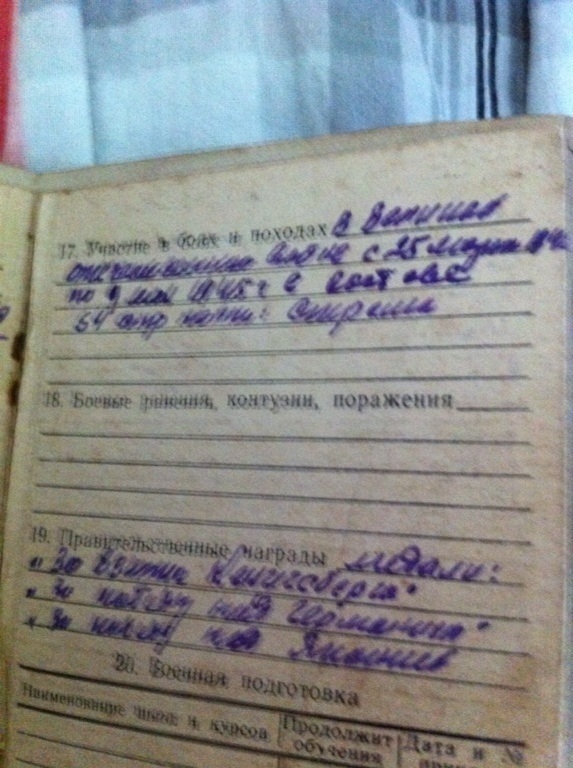 17. Участие в боях и походах в Великой
отечественной войне с 25 марта 194
по 9 мая 1945 г в составе
64 стр полка:
18. Боевые ранения, контузии, поражения
19. Правительственные награды медали:
"За взятие Кенигсберга"
"За победу над Германией"
"За победу над Японией
20. Военная подготовка
Наименование школ и курсов
Продолжит
обучения
Дата и №